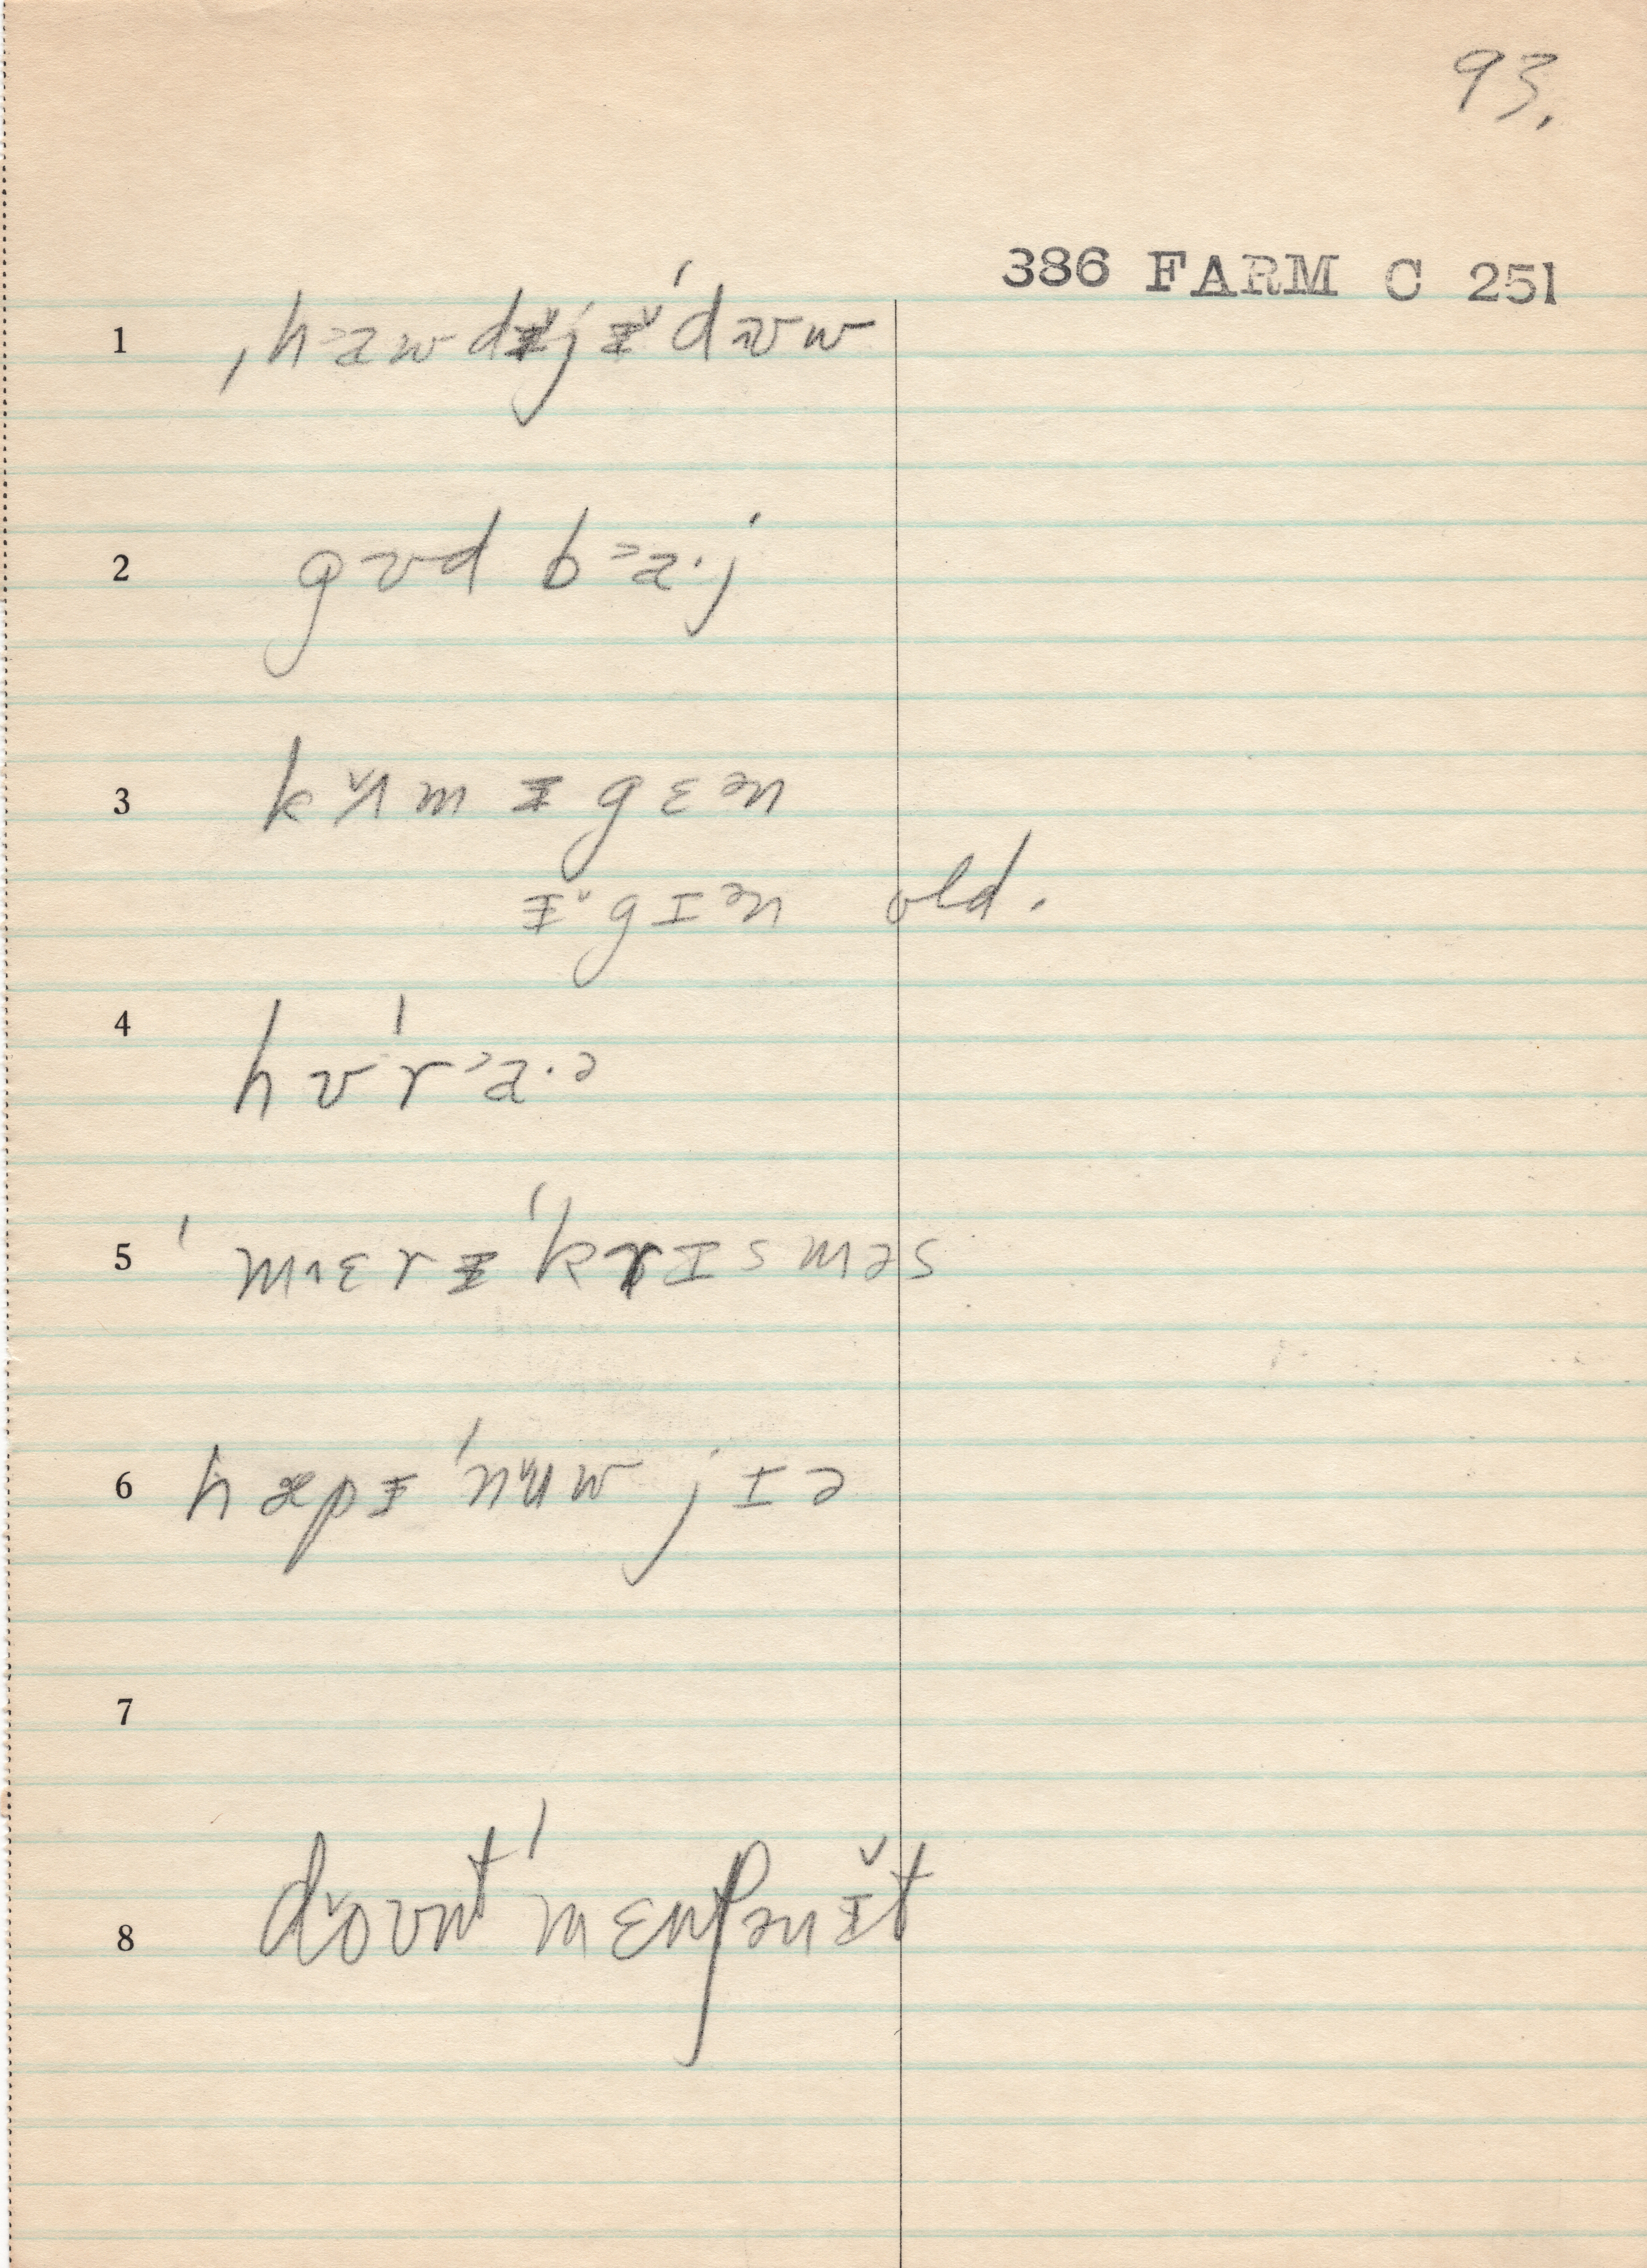 93.
386 FARM C 251
1 ˌh˃awdɨ̆jɨ̆ˈdʊw
2 gʊd b˃a·j
3 kʌ̆m ɨ gɛən
ɨ̆gɪən old.
4 hʊˈr˃a·ə
5 ˈm˄ɛrɨ ˈkrɪsməs
6 hæpɨ ˈnʉw jɪə
7
8 doʊnt ˈmɛnʃənɨ̆t